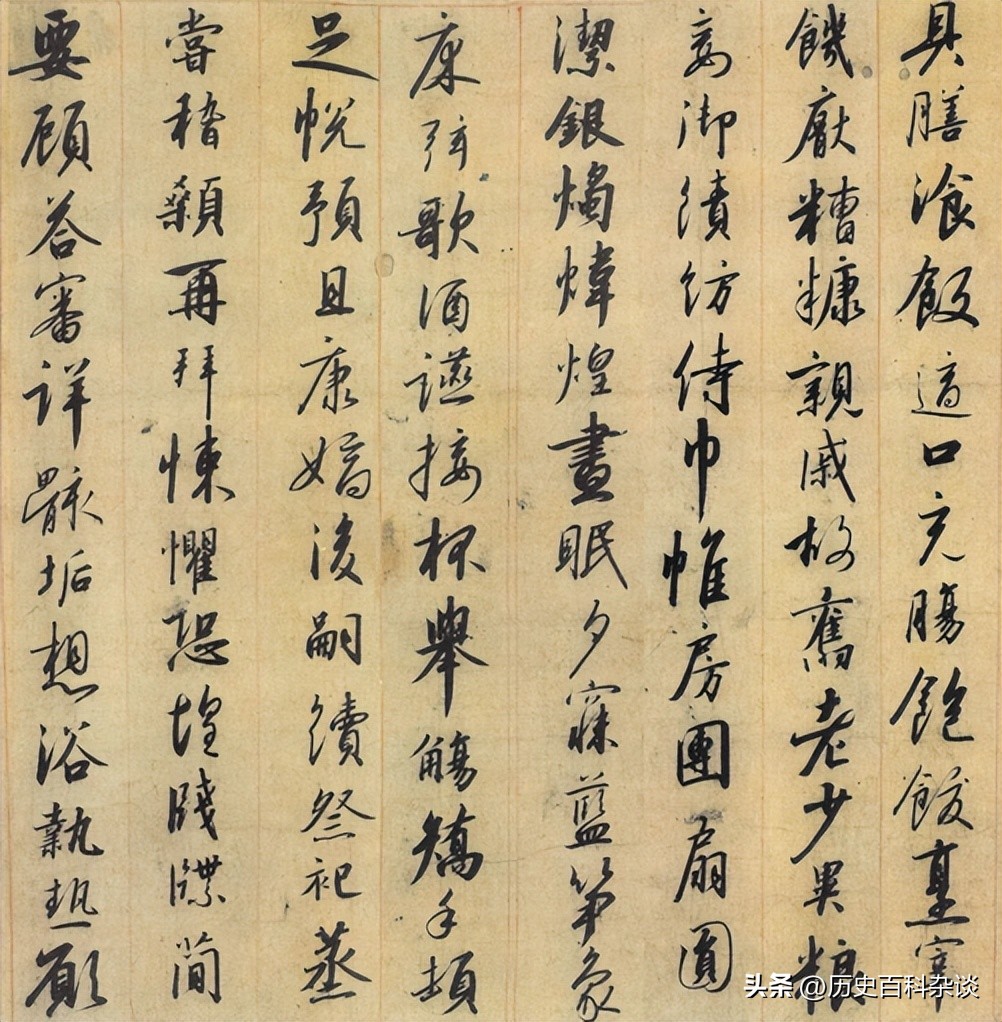 具膳湌飯適口充腸飽飫烹宰
饑厭糟糠親戚故舊老少異糧
妾御績紡侍巾帷房團扇圓
潔銀燭煒煌晝眠夕寐藍笋象
床弦歌酒讌接杯舉觴矯手頓
足悅預且康嫡後嗣續祭祀蒸
嘗稽顙再拜悚懼恐惶牋牒簡
要顧答審詳骸垢想浴執熱願
头条 @历史百科杂谈